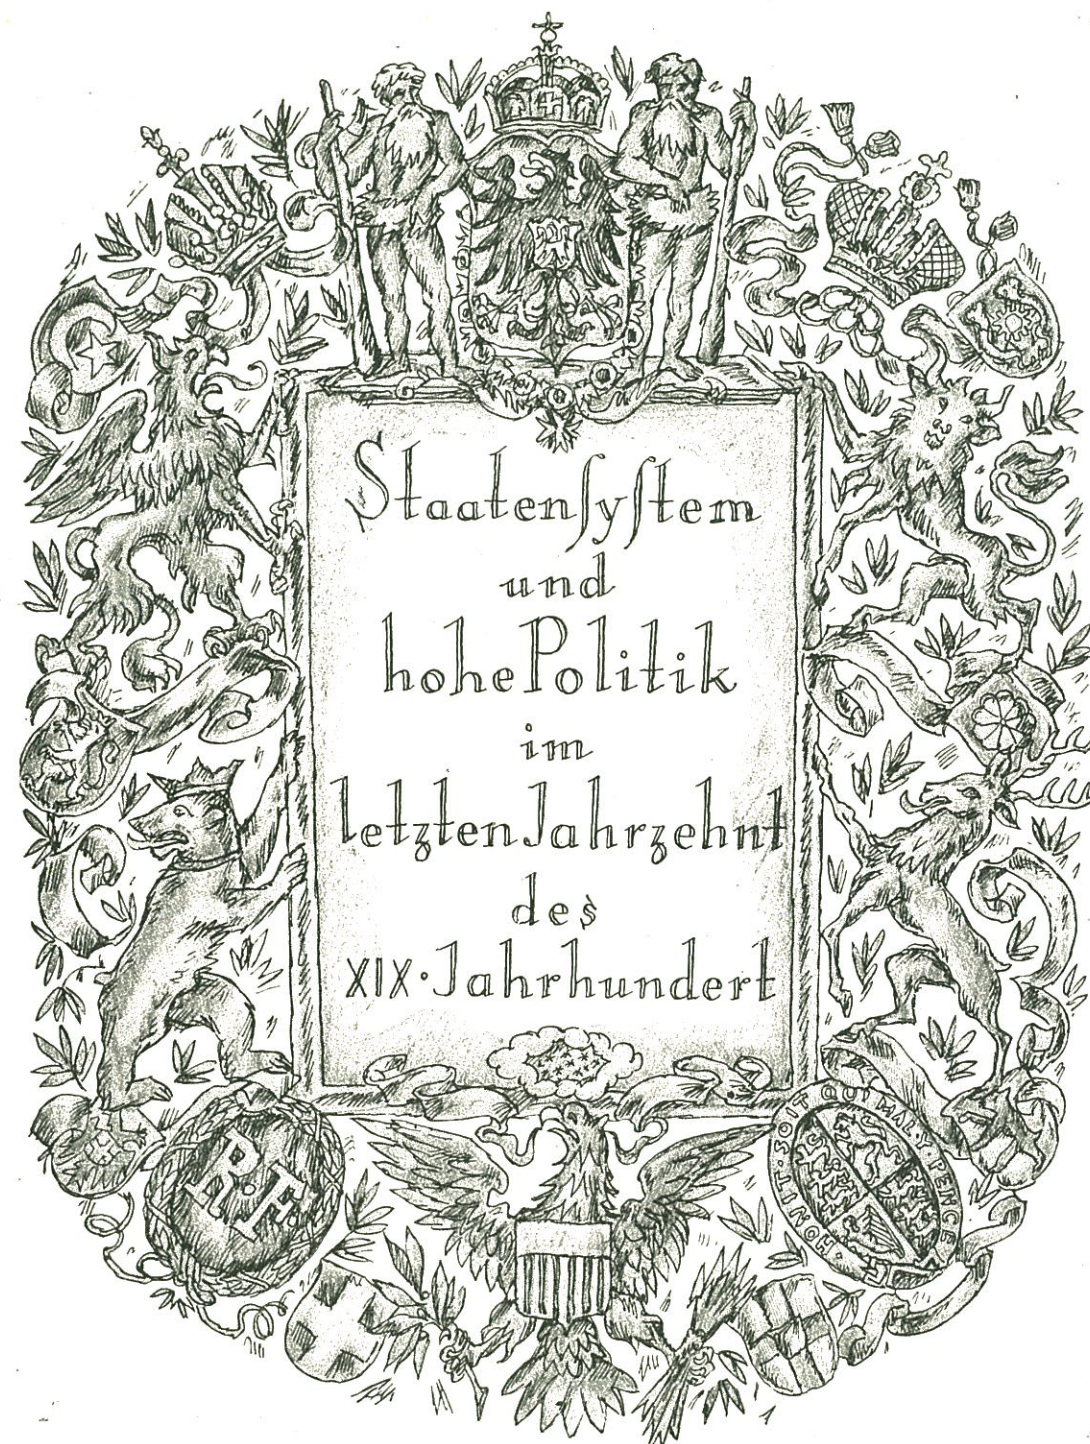 Staatenſyſtem
und
hohe Politik
im
letzten Jahrzehnt
des
XIX·Jahrhundert
R·F.
HONIT·SOIT QUI MAL·Y·PENCE